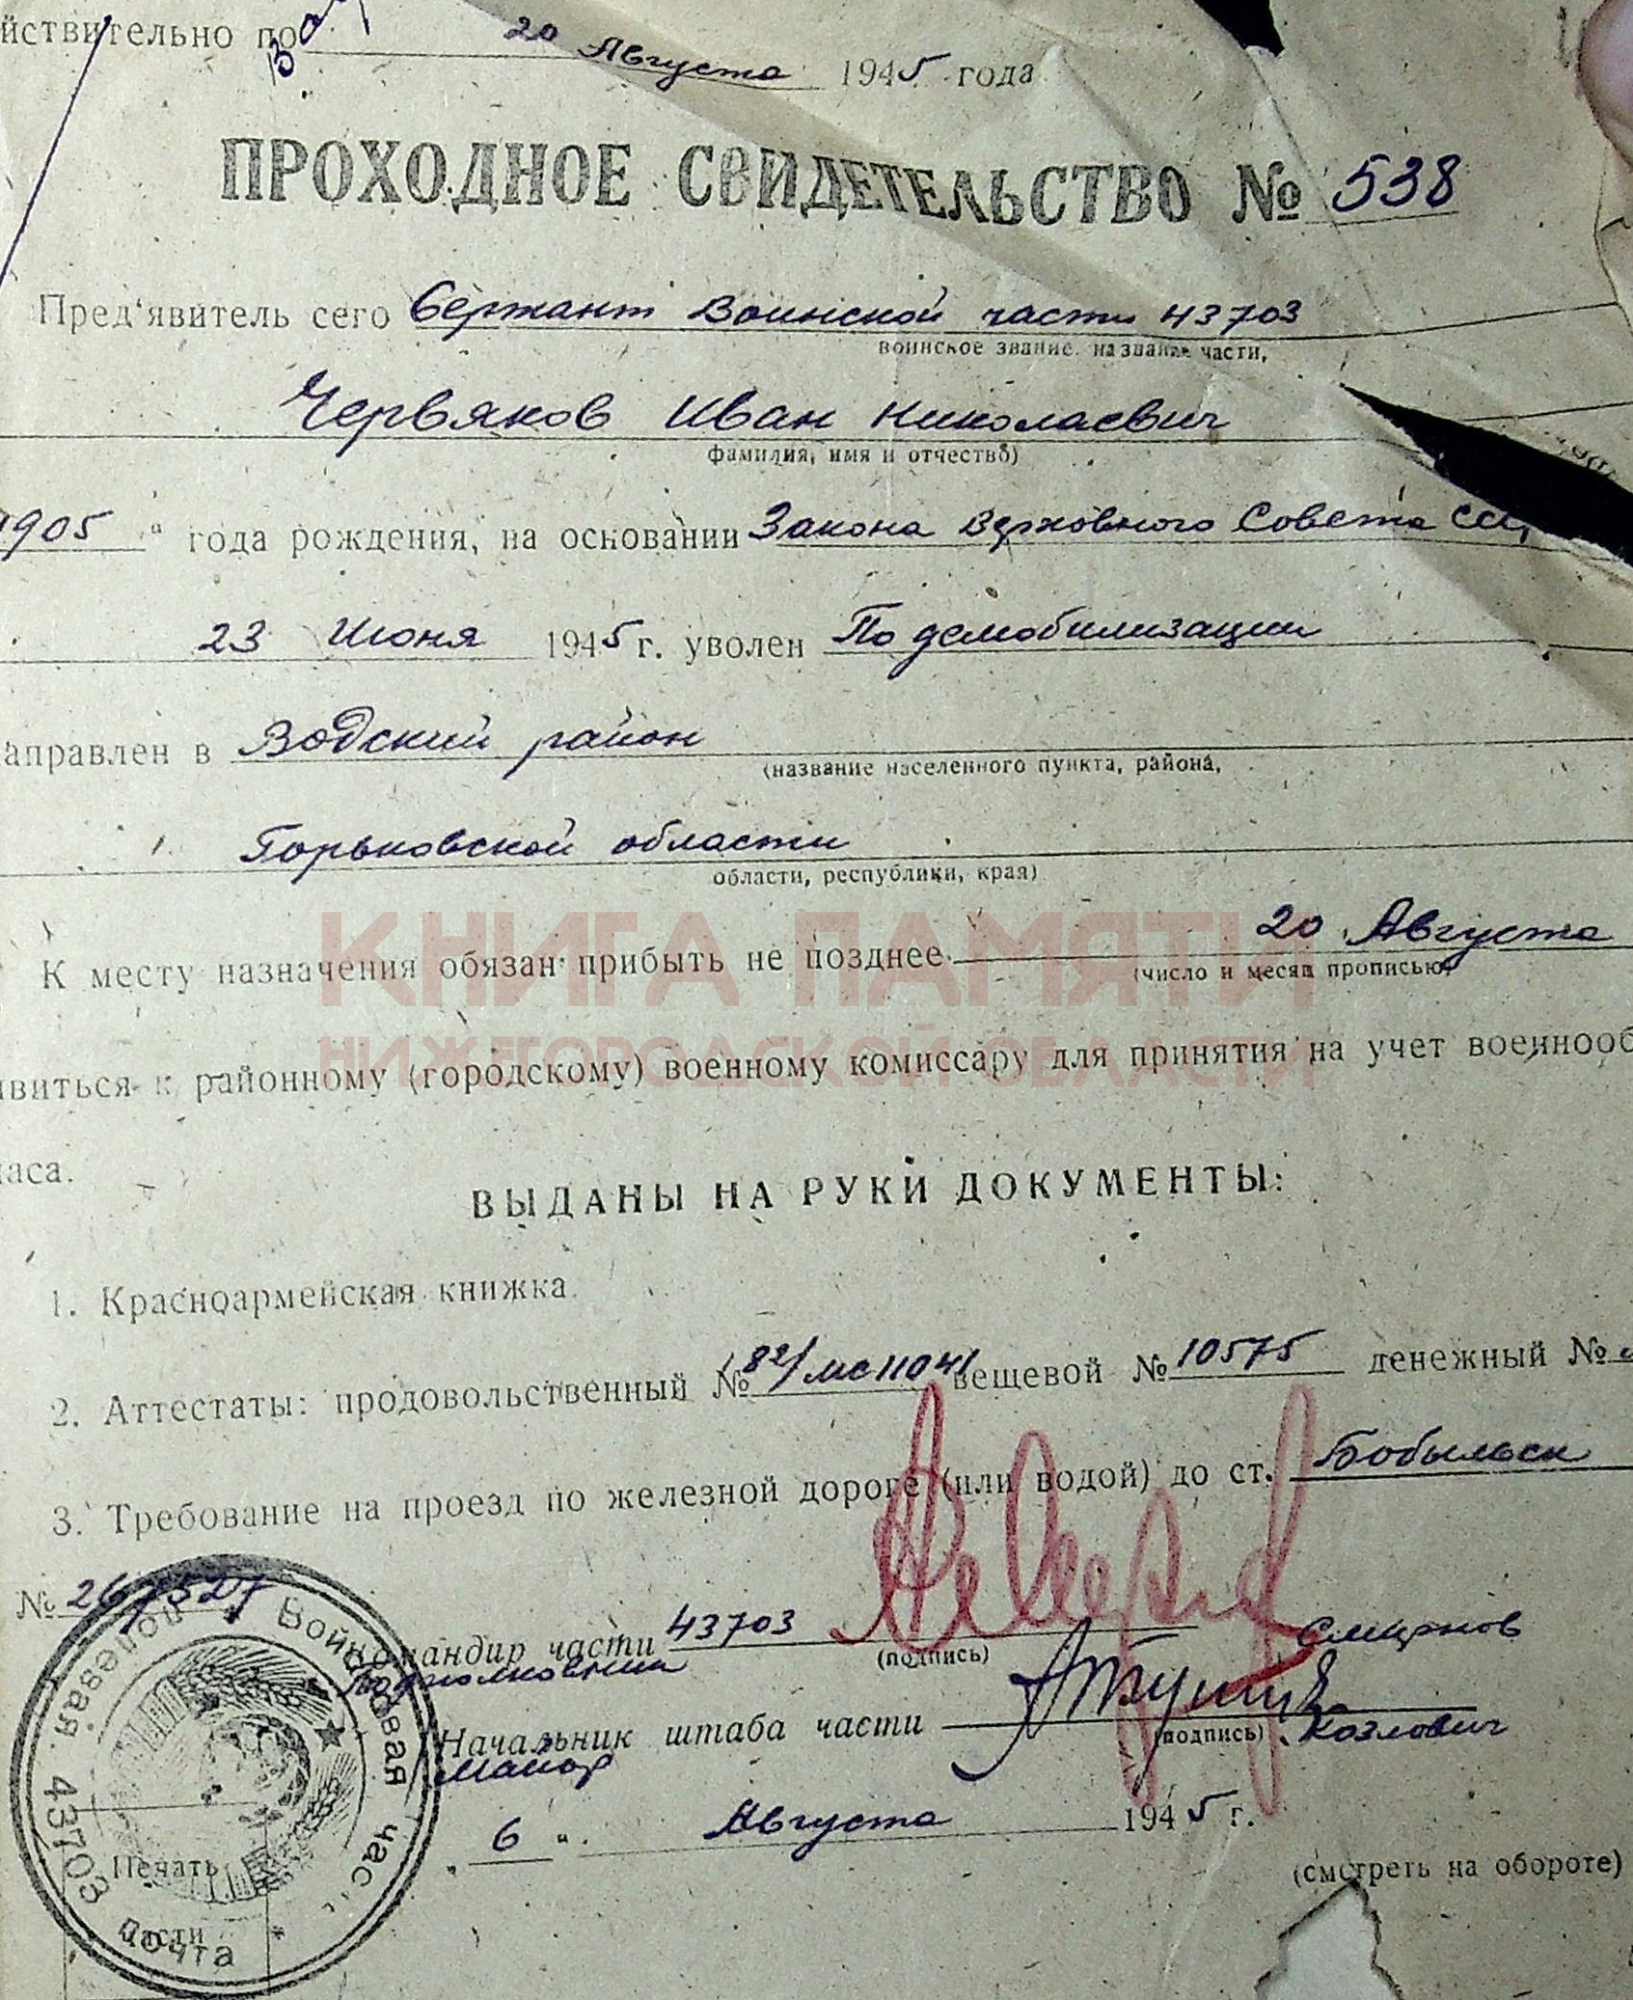 йствительно по 20 Августа 1945 года
ПРОХОДНОЕ СВИДЕТЕЛЬСТВО № 538
Пред'явитель сего Сержант Воинской части 43703
воинское звание, название части,
Червяков Иван Николаевич
фамилия, имя и отчество)
1905 " года рождения, на основании Закона Верховного Совета ССС
23 Июня 1945 г. уволен По демобилизации
аправлен в Водский район
(название населенного пункта, района,
Горьковской области
области, республики, края)
КНИГА ПАМЯТИ
НИЖЕГОРОДСКОЙ ОБЛАСТИ
К месту назначения обязан прибыть не позднее 20 Августа
(число и месяц прописью)
явиться к районному (городскому) военному комиссару для принятия на учет военнооб
наса.
ВЫДАНЫ НА РУКИ ДОКУМЕНТЫ:
1. Красноармейская книжка.
2. Аттестаты: продовольственный № вещевой № 10575 денежный №
3. Требование на проезд по железной дороге (или водой) до ст. Бобыльск
№ 267527
Командир части 43703 Смирнов
(подпись)
Подполковник
Начальник штаба части Козлович
(подпись)
Майор
" 6 " Августа 1945 г.
(смотреть на обороте)
Войсковая часть
полевая почта 43703
Печать
части